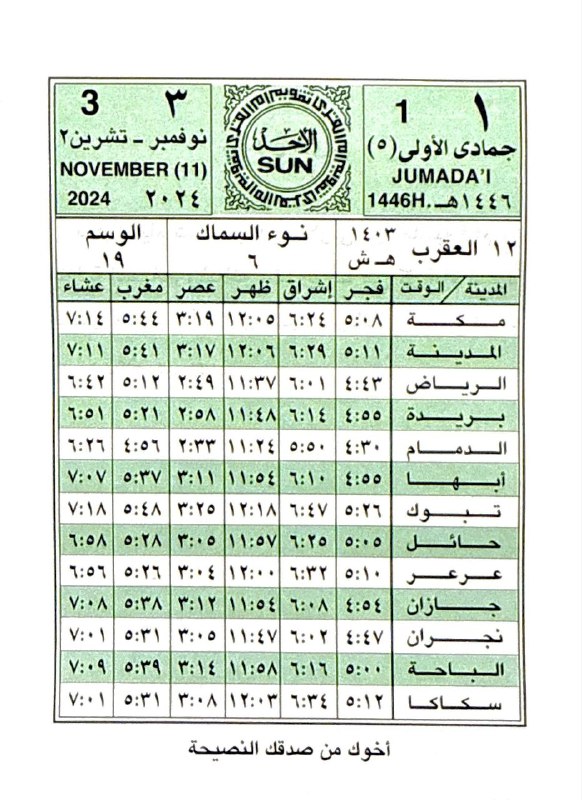 ١ 1
جمادى الأولى (٥)
JUMADA'I
1446H. ١٤٤٦هـ
الأحد
SUN
٣ 3
نوفمبر - تشرين٢
NOVEMBER (11)
2024 ٢٠٢٤
١٢ العقرب ١٤٠٣ هـ ش
نوء السماك
٦
الوسم
١٩
المدينة / الوقت فجر إشراق ظهر عصر مغرب عشاء
مكة ٥:٠٨ ٦:٢٤ ١٢:٠٥ ٣:١٩ ٥:٤٤ ٧:١٤
المدينة ٥:١١ ٦:٢٩ ١٢:٠٦ ٣:١٧ ٥:٤١ ٧:١١
الرياض ٤:٤٣ ٦:٠١ ١١:٣٧ ٢:٤٩ ٥:١٢ ٦:٤٢
بريدة ٤:٥٥ ٦:١٤ ١١:٤٨ ٢:٥٨ ٥:٢١ ٦:٥١
الدمام ٤:٣٠ ٥:٥٠ ١١:٢٤ ٢:٣٣ ٤:٥٦ ٦:٢٦
أبها ٤:٥٥ ٦:١٠ ١١:٥٤ ٣:١١ ٥:٣٧ ٧:٠٧
تبوك ٥:٢٦ ٦:٤٧ ١٢:١٨ ٣:٢٥ ٥:٤٨ ٧:١٨
حائل ٥:٠٥ ٦:٢٥ ١١:٥٧ ٣:٠٥ ٥:٢٨ ٦:٥٨
عرعر ٥:١٠ ٦:٣٢ ١٢:٠٠ ٣:٠٤ ٥:٢٦ ٦:٥٦
جازان ٤:٥٤ ٦:٠٨ ١١:٥٤ ٣:١٢ ٥:٣٨ ٧:٠٨
نجران ٤:٤٧ ٦:٠٢ ١١:٤٧ ٣:٠٥ ٥:٣١ ٧:٠١
الباحة ٥:٠٠ ٦:١٦ ١١:٥٨ ٣:١٤ ٥:٣٩ ٧:٠٩
سكاكا ٥:١٢ ٦:٣٤ ١٢:٠٣ ٣:٠٨ ٥:٣١ ٧:٠١
أخوك من صدقك النصيحة